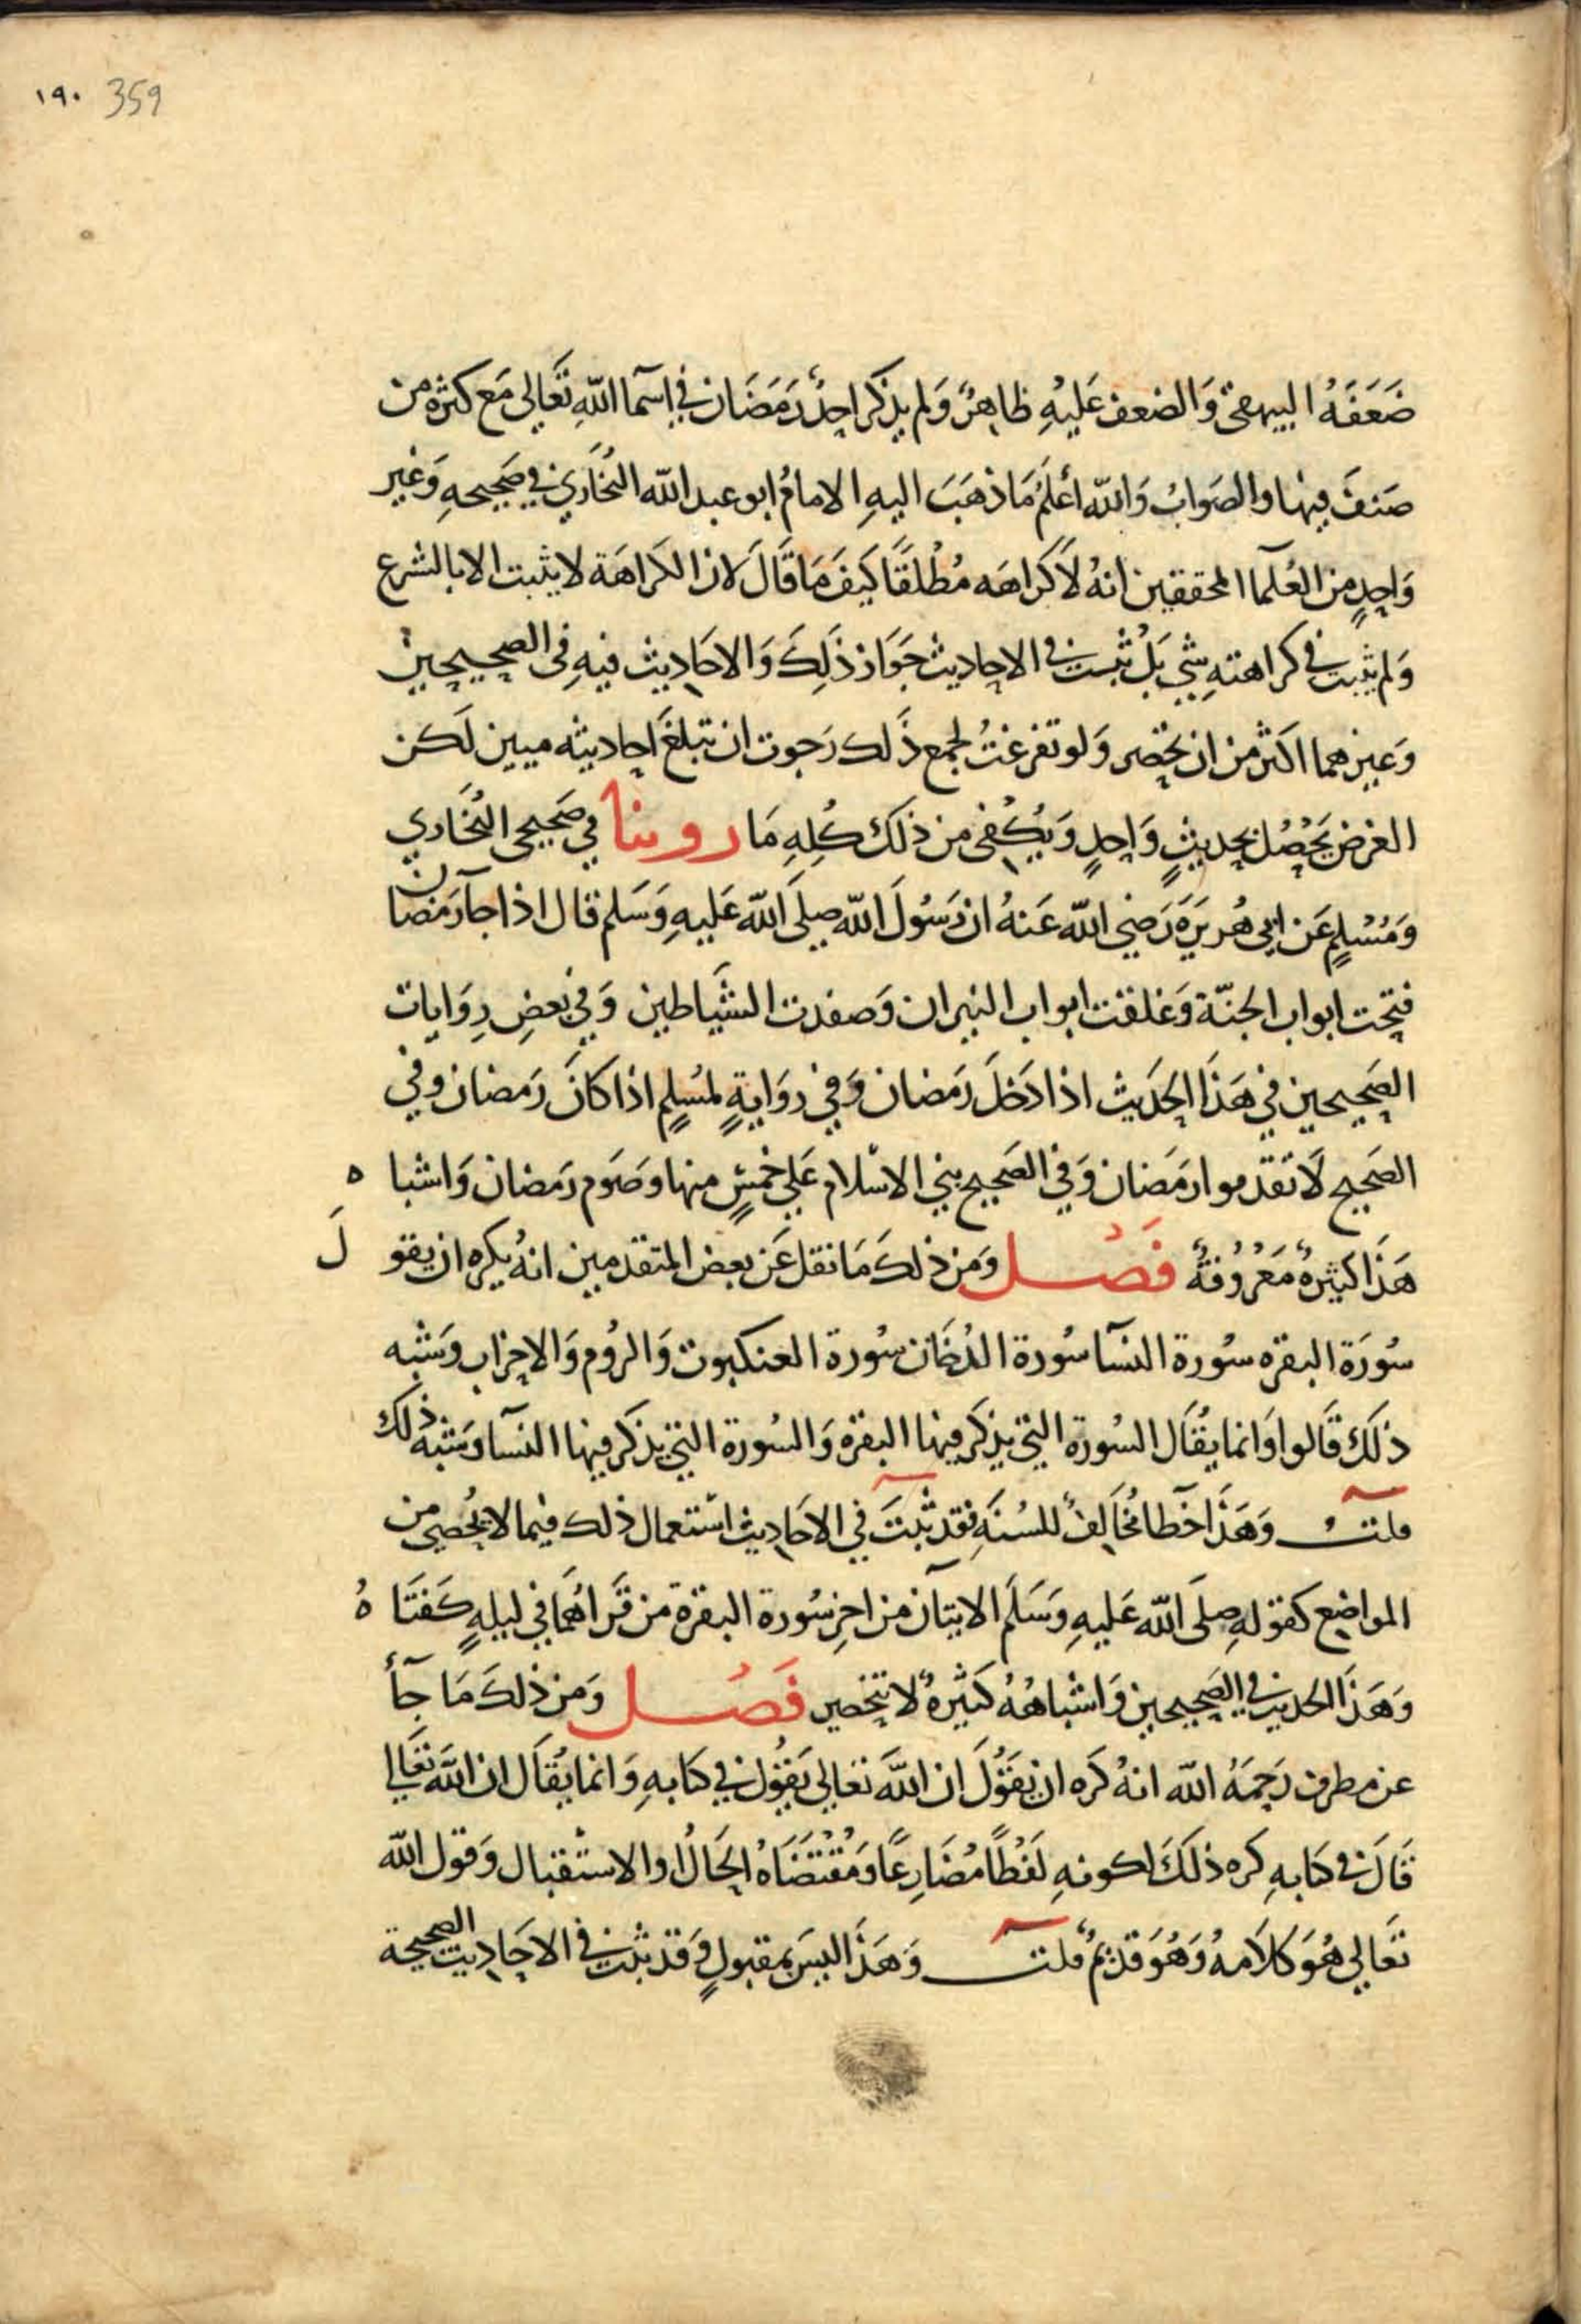 ١٩٠ 359
ضَعَفَهُ البيهقى وَالضعف عَليْهِ ظاهِرٌ وَلم يذكر احِدٌ رَمَضَان في اسَما اللهِ تعَالى مَع كثرة من
صَنفَ فيها والصَوابُ وَالله أعْلَمُ مَا ذهَبَ اليهِ الامامُ ابو عبد الله البُخَاري في صَحيحهِ وَغير
وَاحِدٍ من العُلمآ المحققين انهُ لاَ كراهَه مُطْلقًا كيَفَ مَا قَالَ لان الكَراهَة لا يثبت الا بالشرع
وَلم يثبت في كراهتهِ شي بَلْ ثبت في الاحاديث جَوَاز ذَلِكَ وَالاحَاديث فيهِ فى الصحيحين
وَغيرهما اكثر من ان يحْصَر وَلو تفرغتُ لجمع ذَلك رَجوت ان تبلغَ احاديثه ميين لَكن
الغرض يَحْصُل بحديثٍ وَاحدٍ وَيكُفى من ذلكَ كُلِهِ مَا روينا في صَحيحي البُخَاري
وَمُسْلِمٍ عَن ابي هُريَرَة رَضِي الله عَنهُ ان رَسُولَ الله صلى الله عَليهِ وَسَلم قال اذا جآ رَمضان
فتحت ابواب الجنّة وَغلقت ابواب النيران وَصفدت الشَياطين وَفي بَعضِ رِوَايات
الصَحيحين في هَذَا الحَديث اذا دَخلَ رَمضان وَفي روَايةٍ لمسُلِمٍ اذا كانَ رَمضان وفي
الصَحيح لاَ تقدموا رَمَضان وَفي الصَحيح بني الاسْلام عَلي خمسٍ منها وصَوم رَمضان وَاشباه
هَذَا كثيرةٌ مَعْرُوفةٌ فَصْل وَمن ذلكَ مَا نقل عَن بعض المتقدمين انهُ يكره ان يقولَ
سُورَة البقره سورة النسَآ سُورة الدُخَان سُورة العنكبوت وَالرُوم وَالاحزاب وَشبه
ذلكَ قَالوا وَانما يقُال السُورة التي يذكر فيها البقره وَالسُورة التي يذكر فيها النسآ وشبه ذلك
قلت وَهَذَا خطا مُخَالِفٌ للسُنَةِ فقد ثبَتَ في الاحَاديث استعمال ذلك فيما لا يُحصي من
المواضِع كقولهِ صلى الله عَليهِ وَسَلَم الايتان من اخِر سُورة البقرة من قرَاهُمَا في ليلهٍ كَفتَاهُ
وَهَذَا الحديث في الصَحيحين وَاشباههُ كثيرةٌ لا تنحصر فَصْل وَمن ذلكَ مَا جَآ
عن مطرف رَحِمَهُ الله انهُ كَره ان يَقَوُلَ ان اللهَ تعَالي يَقوُل في كتابهِ وَانما يقُال ان اللهَ تعَالي
قَالَ في كتابهِ كره ذلكَ لكونهِ لفظًا مُضَارعًا وَمُقْتضَاهُ الحَال او الاستقبال وَقول الله
تعَالي هُوَ كلاَمهُ وَهُوَ قديمٌ قلت وَهَذَا ليسَ بمقبولٍ وَقد ثبت في الاحَاديث الصحيحة